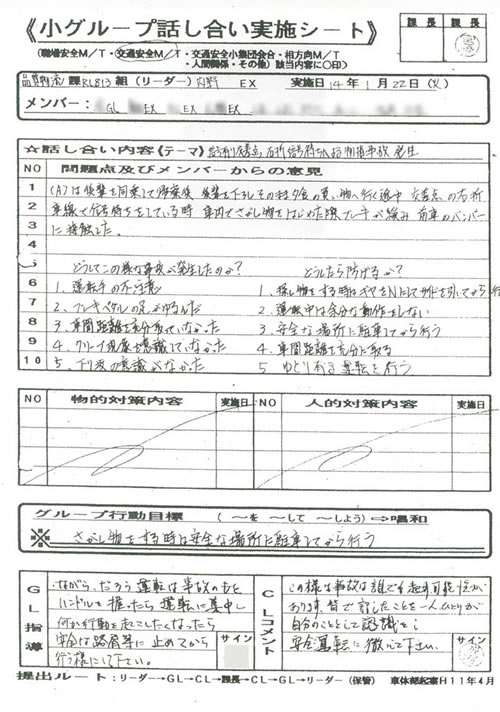 《小グループ話し合い実施シート》
課長 課長
(職場安全M/T・交通安全M/T・交通安全小集団会合・相方向M/T
・人間関係・その他)該当内容に○印)
課 組(リーダー) EX 実施日 14年 1月 22日(火)
メンバー: GL EX EX EX
☆話し合い内容《テーマ》 発生
NO 問題点及びメンバーからの意見
1 (A)は後輩を同乗して帰寮後 後輩を下ろしその社夕食の買い物へ行く途中 交差点の右折
2 車線で信号待ちをしている時 車内でさがし物をはじめた際ブレーキが緩み 前車のバンパー
3 に接触した。
4
5 どうしてこの様な事故が発生したのか? どうしたら防げるか?
6 1、運転手の不注意 1、探し物をする時はギヤをNにしてサイドを引いてから行
7 2、ブレーキペダルの足がゆるんだ 2、運転中は余分な動作をしない
8 3、車間距離を充分取っていなかった 3、安全な場所に駐車してから行う
9 4、クリープ現象を意識していなかった 4、車間距離を充分に取る
10 5、下り坂の意識がなかった 5 ゆとりある運転を行う
NO 物的対策内容 実施日 NO 人的対策内容 実施日
グループ行動目標 (~を ~して ~しよう)⇒唱和
※ さがし物をする時は安全な場所に駐車してから行う
GL指導
ながら、だろう運転は事故のもと
ハンドルを握ったら運転に集中し
何か行動を起こしたくなったら
安全な路肩等に止めてから
行う様にして下さい。
サイン
CLコメント
この様な事故は誰でも起す可能性が
あります、皆で話したことを一人ひとりが
自分のこととして認識し
安全運転に徹して下さい。
サイン
提出ルート:リーダー→GL→CL→課長→CL→GL→リーダー(保管) 車体部紀案H11年4月